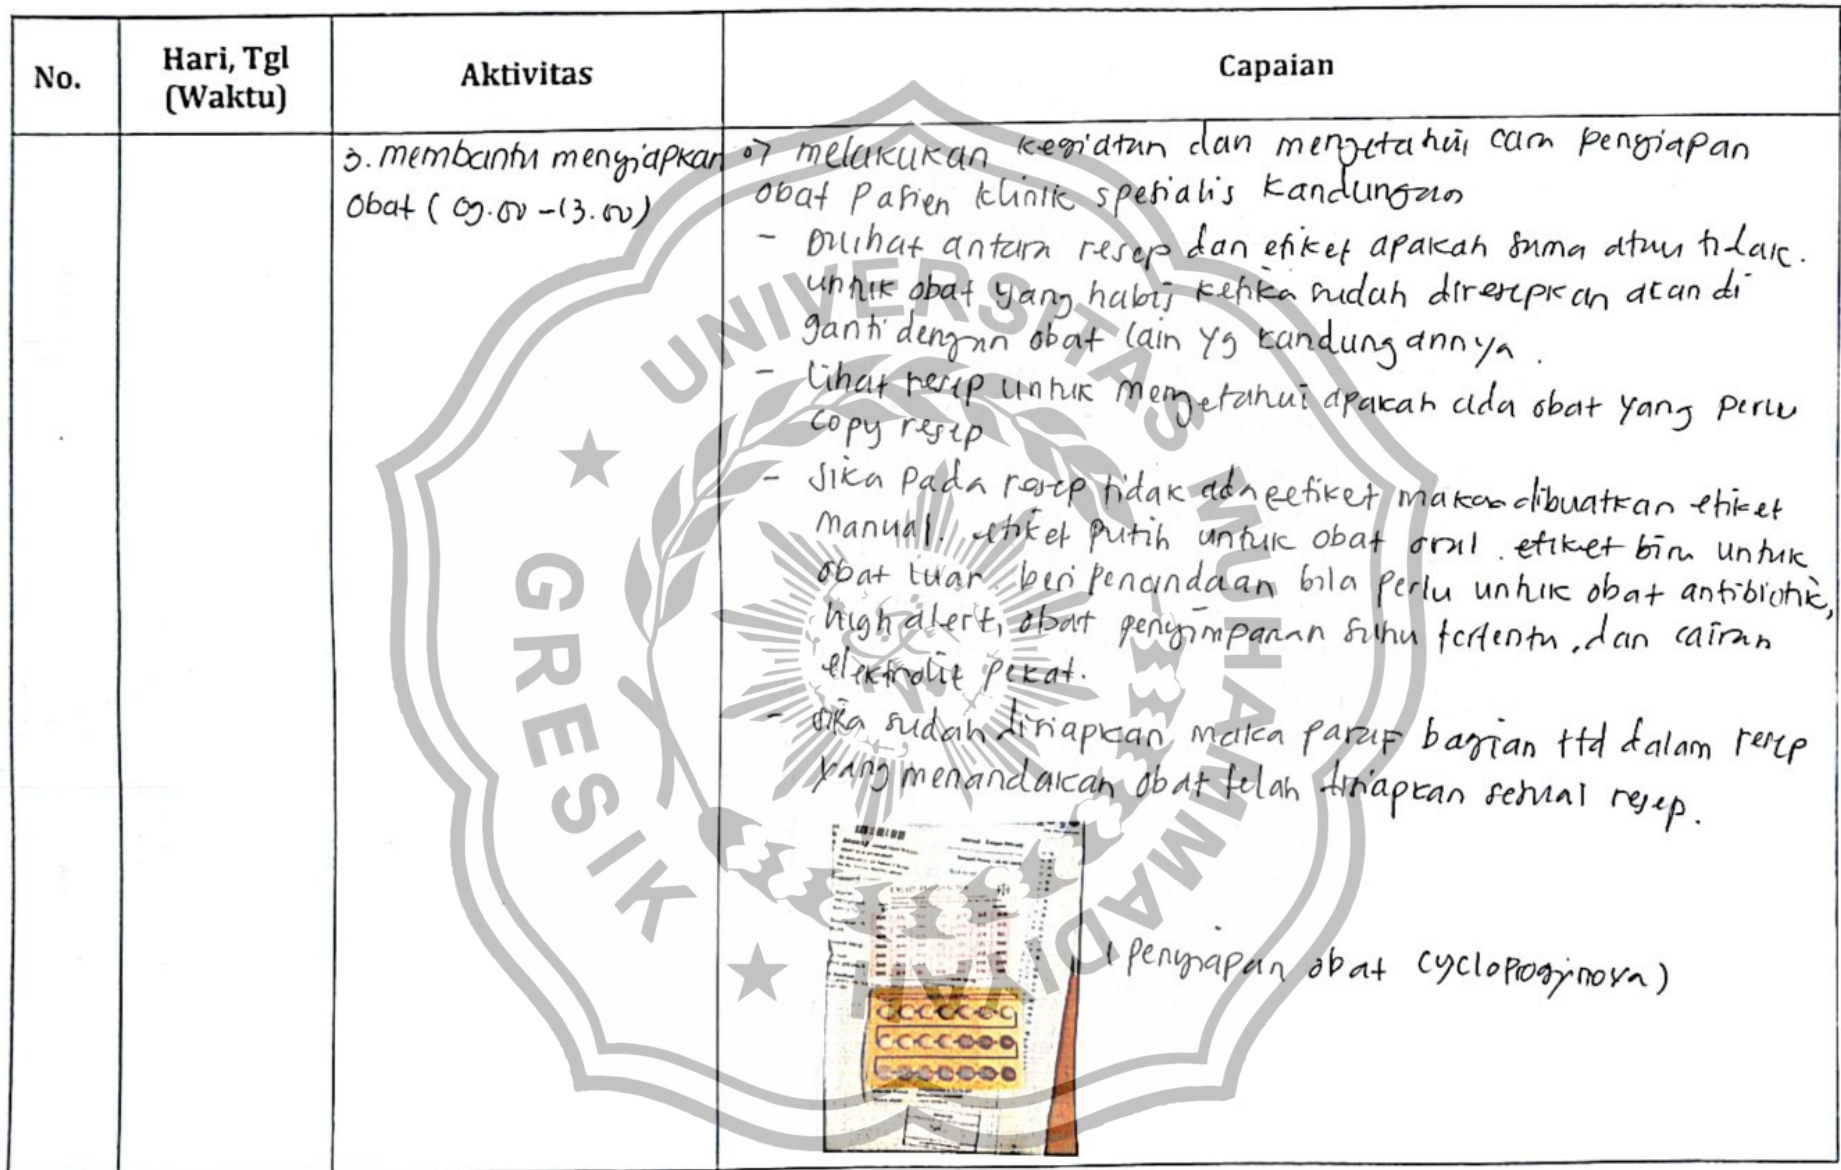 No.
Hari, Tgl
(Waktu)
Aktivitas
Capaian
3. membantu menyiapkan
obat (09.00 - 13.00)
melakukan kegiatan dan mengetahui cara penyiapan
obat pasien klinik spesialis kandungan
- Dilihat antara resep dan etiket apakah sama atau tidak.
untuk obat yang habis ketika sudah diresepkan akan di
ganti dengan obat lain yg kandungannya.
- Lihat resep untuk mengetahui apakah ada obat yang perlu
copy resep
- Jika pada resep tidak ada etiket maka dibuatkan etiket
manual. etiket putih untuk obat oral. etiket biru untuk
obat luar. beri penandaan bila perlu untuk obat antibiotik,
high alert, obat penyimpanan suhu tertentu, dan cairan
elektrolit pekat.
- Jika sudah disiapkan maka paraf bagian ttd dalam resep
yang menandakan obat telah disiapkan sesuai resep.
(penyiapan obat cycloprogynova)
UNIVERSITAS MUHAMMADIYAH
GRESIK